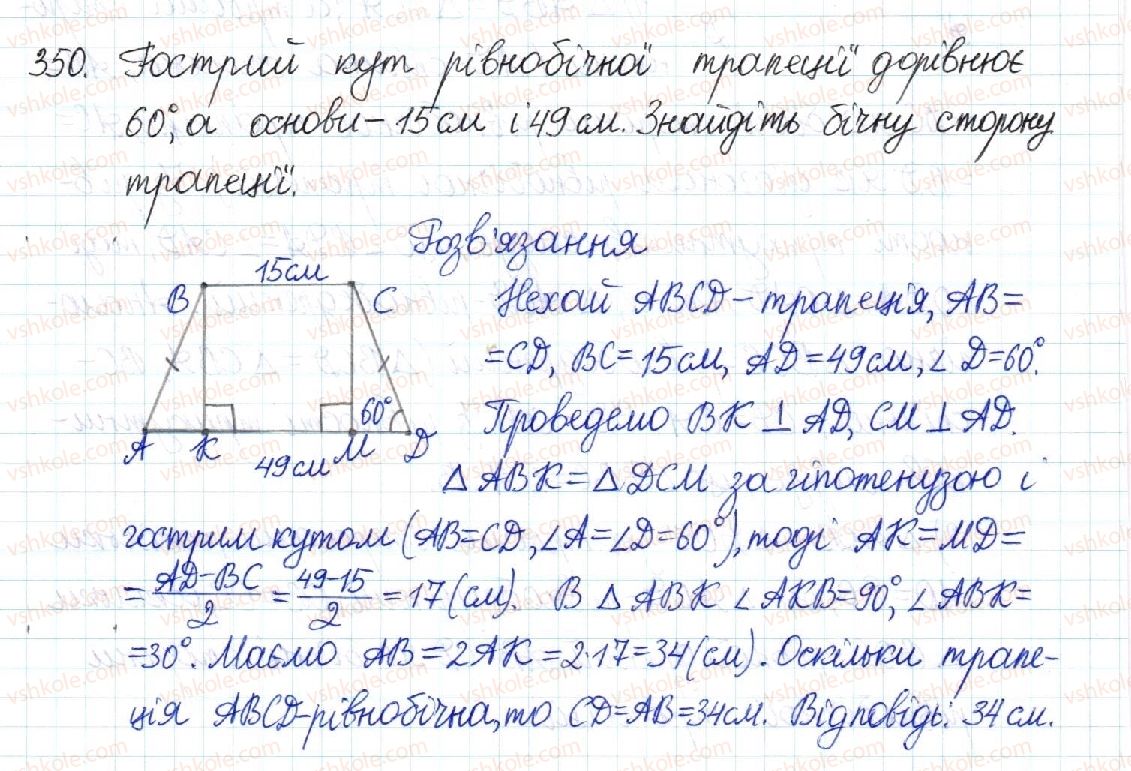 350. Гострий кут рівнобічної трапеції дорівнює
60°, а основи – 15 см і 49 см. Знайдіть бічну сторону
трапеції.
Розв'язання
15 см
B C
60°
A K M D
49 см
Нехай ABCD – трапеція, AB =
= CD, BC = 15 см, AD = 49 см, ∠ D = 60°.
Проведемо BK ⊥ AD, CM ⊥ AD.
△ ABK = △ DCM за гіпотенузою і
гострим кутом (AB = CD, ∠A = ∠D = 60°), тоді AK = MD =
= (AD – BC)/2 = (49 – 15)/2 = 17 (см). В △ ABK ∠ AKB = 90°, ∠ ABK =
= 30°. Маємо AB = 2AK = 2·17 = 34 (см). Оскільки трапе-
ція ABCD – рівнобічна, то CD = AB = 34 см. Відповідь: 34 см.
vshkole.com